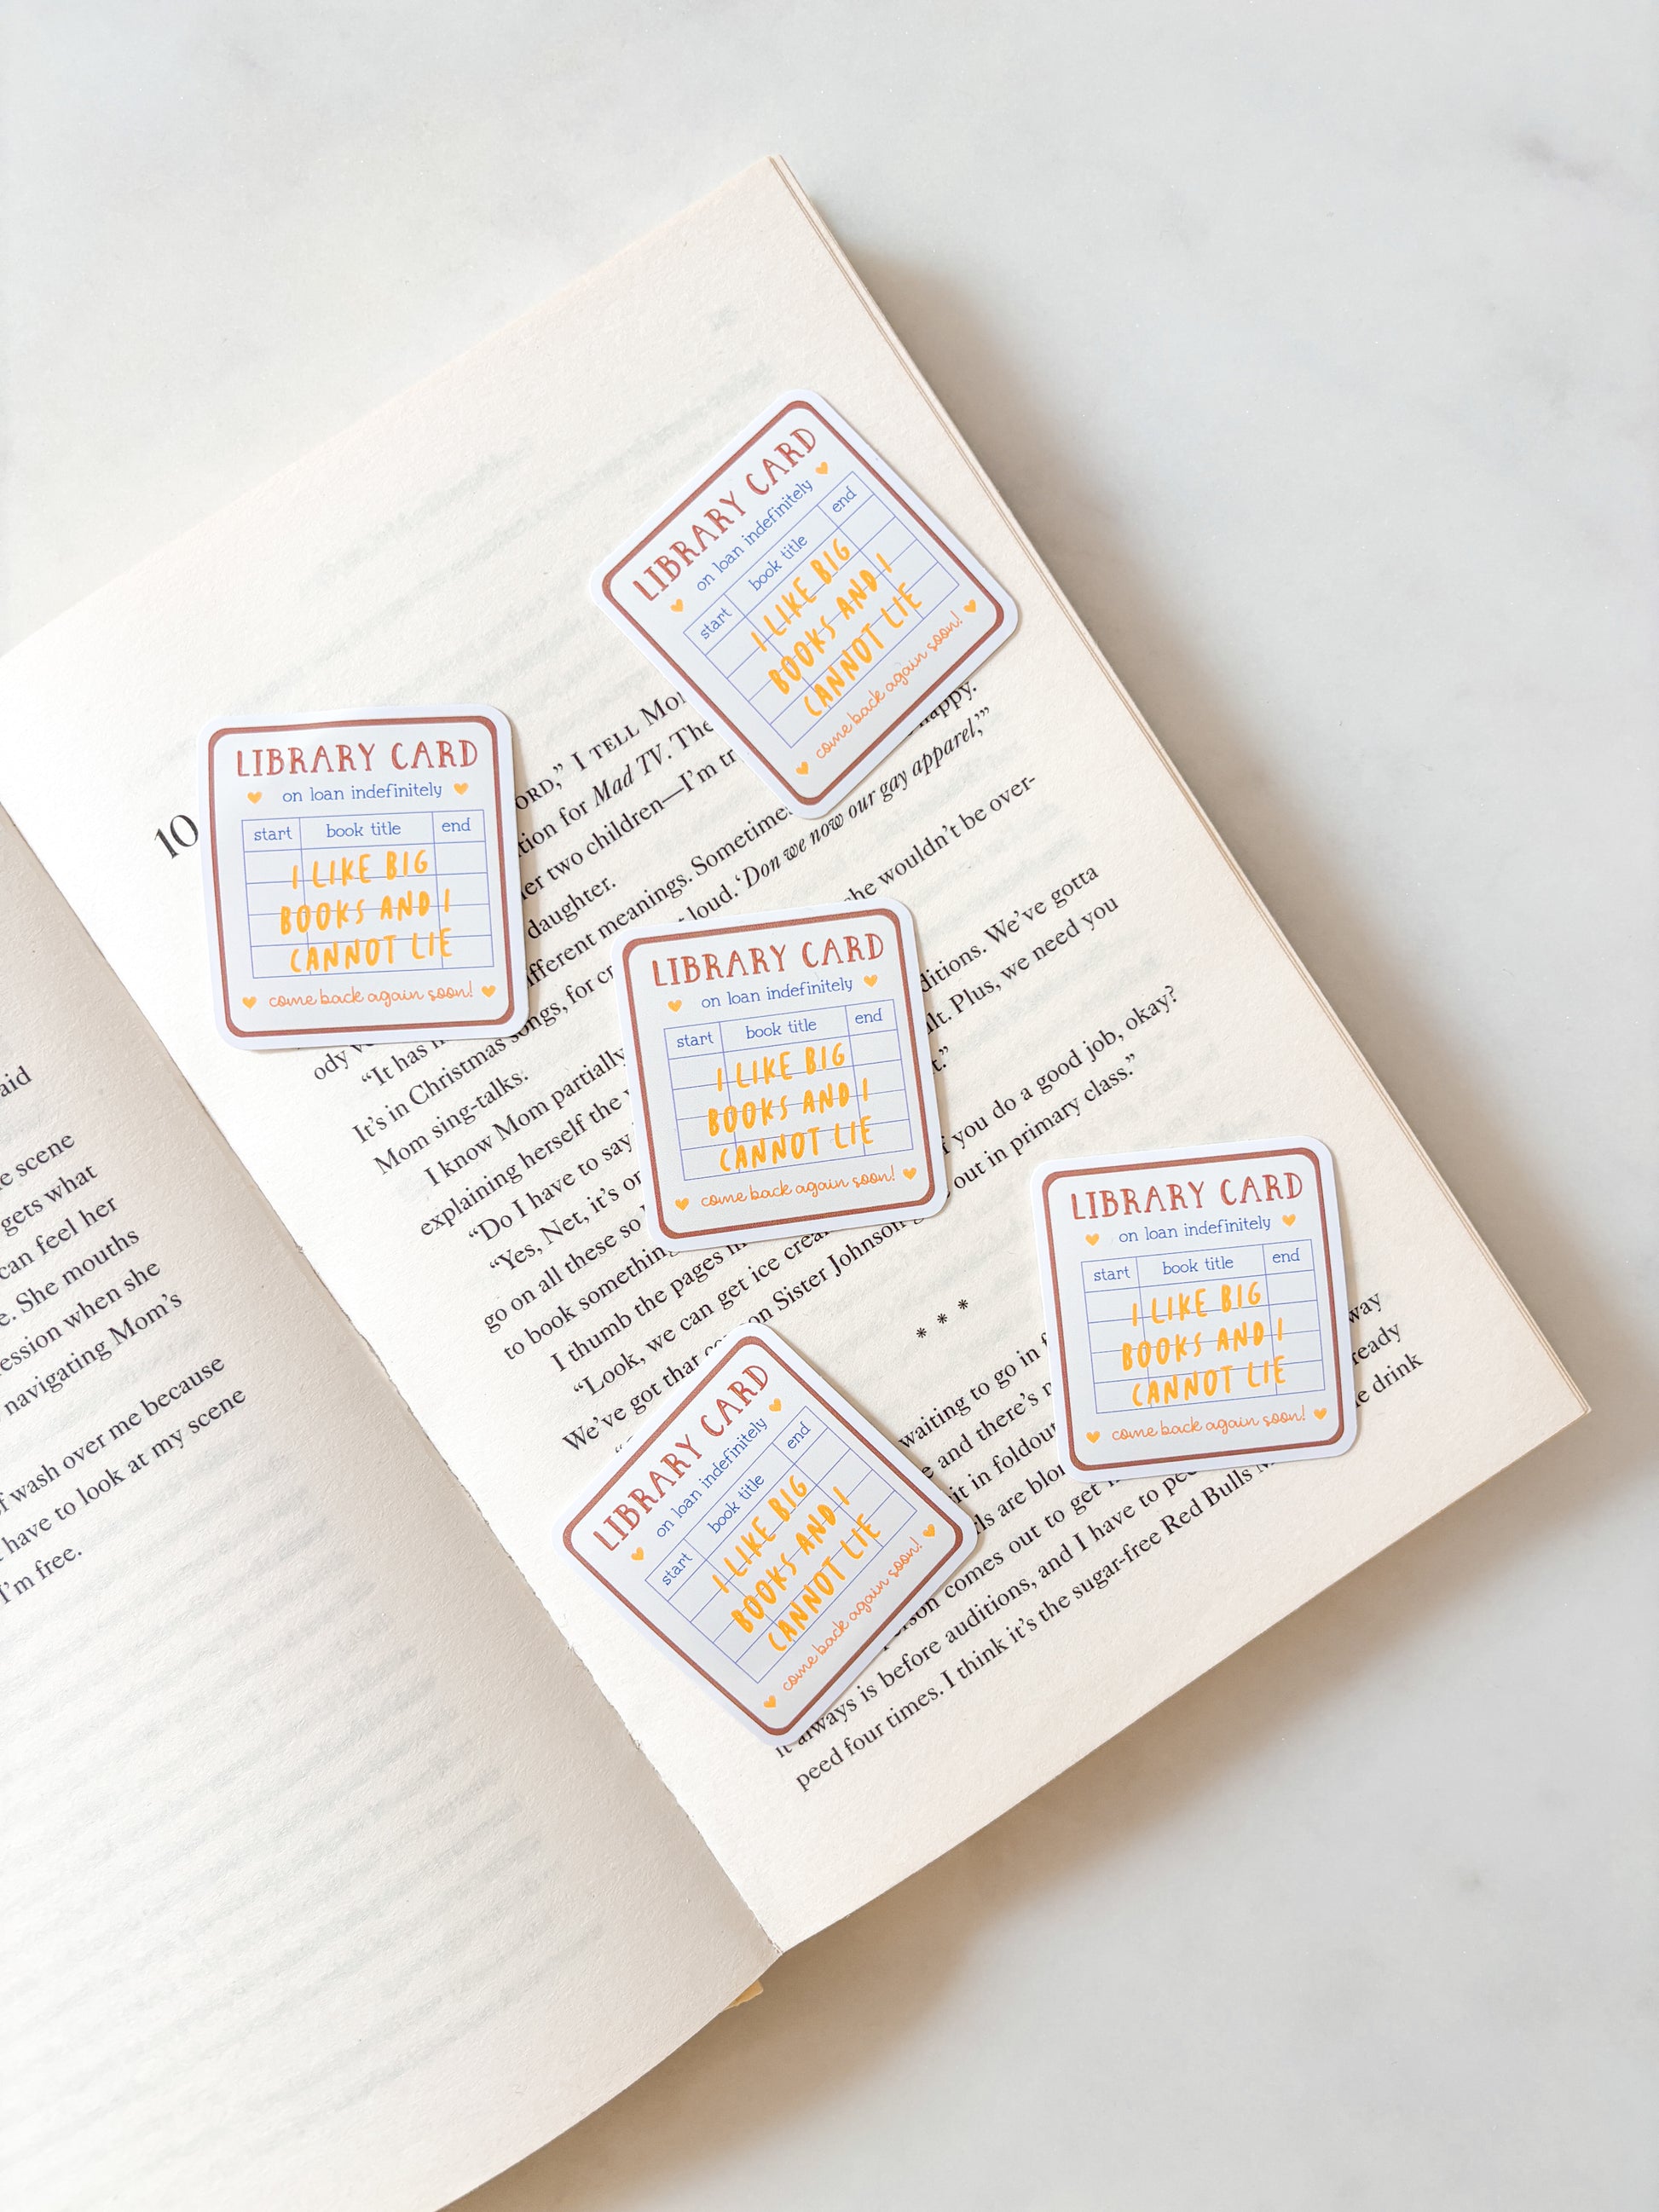 aid
e scene
gets what
can feel her
e. She mouths
ession when she
navigating Mom's
of wash over me because
have to look at my scene
I'm free.
10
ORD,” I TELL Mo
tion for Mad TV. The
er two children—I'm tr
daughter.
fferent meanings. Sometimes
happy.
loud. ‘Don we now our gay apparel,’”
she wouldn't be over-
ody
“It has
It's in Christmas songs, for cr
Mom sing-talks.
ditions. We've gotta
I know Mom partially
lt. Plus, we need you
explaining herself the
t.”
“Do I have to say
“Yes, Net, it's or
if you do a good job, okay?
go on all these so
out in primary class.”
to book something
I thumb the pages in
“Look, we can get ice crea
We've got that
on Sister Johnson
* * *
waiting to go in f
way
e and there's
ready
it in foldout
e drink
ls are blon
comes out to get
it always is before auditions, and I have to pee
peed four times. I think it's the sugar-free Red Bulls
LIBRARY CARD
on loan indefinitely
start book title end
I LIKE BIG
BOOKS AND I
CANNOT LIE
come back again soon!
LIBRARY CARD
on loan indefinitely
start book title end
I LIKE BIG
BOOKS AND I
CANNOT LIE
come back again soon!
LIBRARY CARD
on loan indefinitely
start book title end
I LIKE BIG
BOOKS AND I
CANNOT LIE
come back again soon!
LIBRARY CARD
on loan indefinitely
start book title end
I LIKE BIG
BOOKS AND I
CANNOT LIE
come back again soon!
LIBRARY CARD
on loan indefinitely
start book title end
I LIKE BIG
BOOKS AND I
CANNOT LIE
come back again soon!